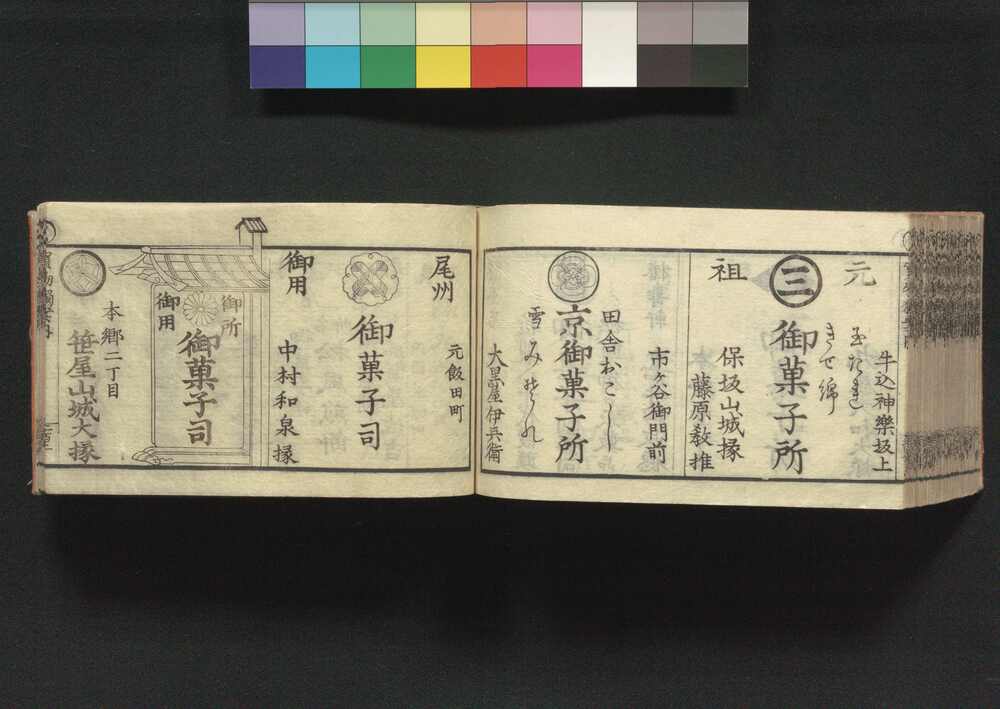 元
祖
三
牛込神樂坂上
玉だれ
きせ綿
御菓子所
保坂山城掾
藤原敎推
市ヶ谷御門前
田舎おこし
京御菓子所
雪みぞれ
大黒屋伊兵衛
尾州
御用
元飯田町
御菓子司
中村和泉掾
御所
御用
御菓子司
本郷二丁目
笹屋山城大掾